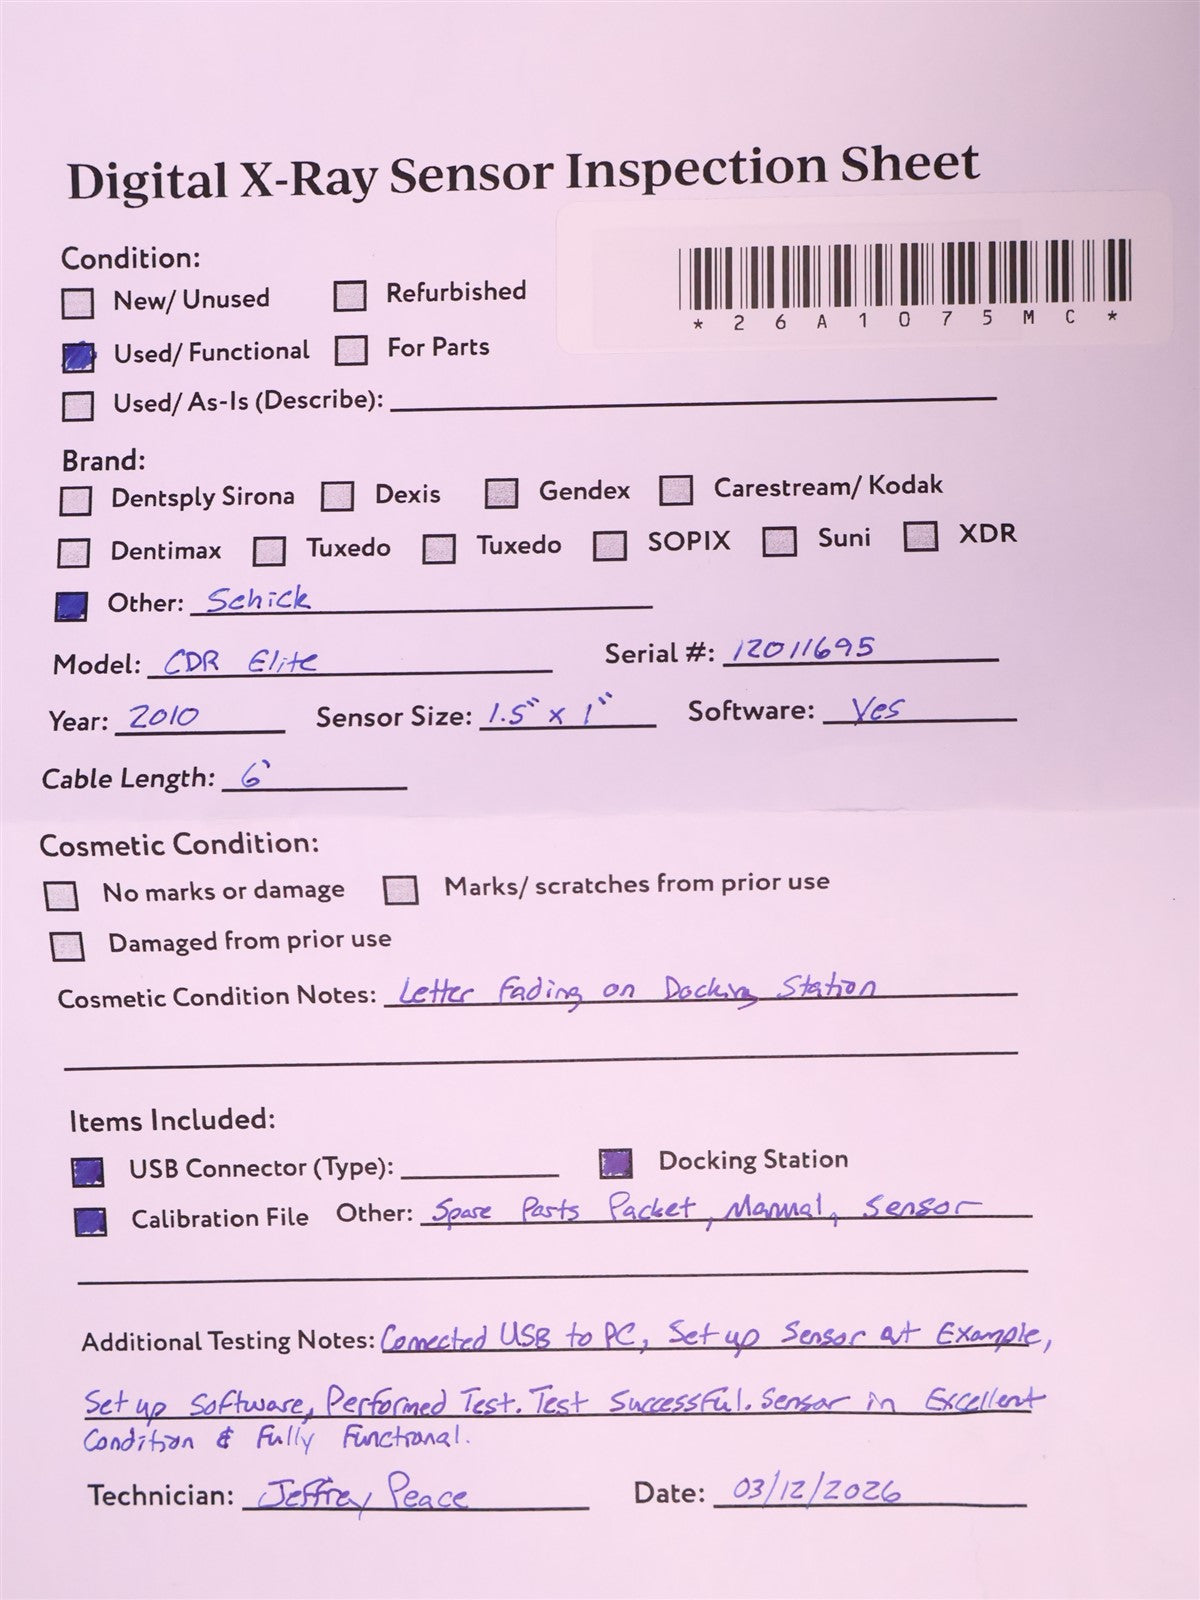 Digital X-Ray Sensor Inspection Sheet
Condition:
New/ Unused Refurbished
* 2 6 A 1 0 7 5 M C *
Used/ Functional For Parts
Used/ As-Is (Describe):
Brand:
Dentsply Sirona Dexis Gendex Carestream/ Kodak
Dentimax Tuxedo Tuxedo SOPIX Suni XDR
Other: Schick
Model: CDR Elite Serial #: 12011695
Year: 2010 Sensor Size: 1.5" x 1" Software: Yes
Cable Length: 6'
Cosmetic Condition:
No marks or damage Marks/ scratches from prior use
Damaged from prior use
Cosmetic Condition Notes: Letter Fading on Docking Station
Items Included:
USB Connector (Type): Docking Station
Calibration File Other: Spare Parts Packet, Manual, Sensor
Additional Testing Notes: Connected USB to PC, Set up Sensor at Example,
Set up Software, Performed Test. Test Successful. Sensor in Excellent
Condition & Fully Functional.
Technician: Jeffrey Peace Date: 03/12/2026